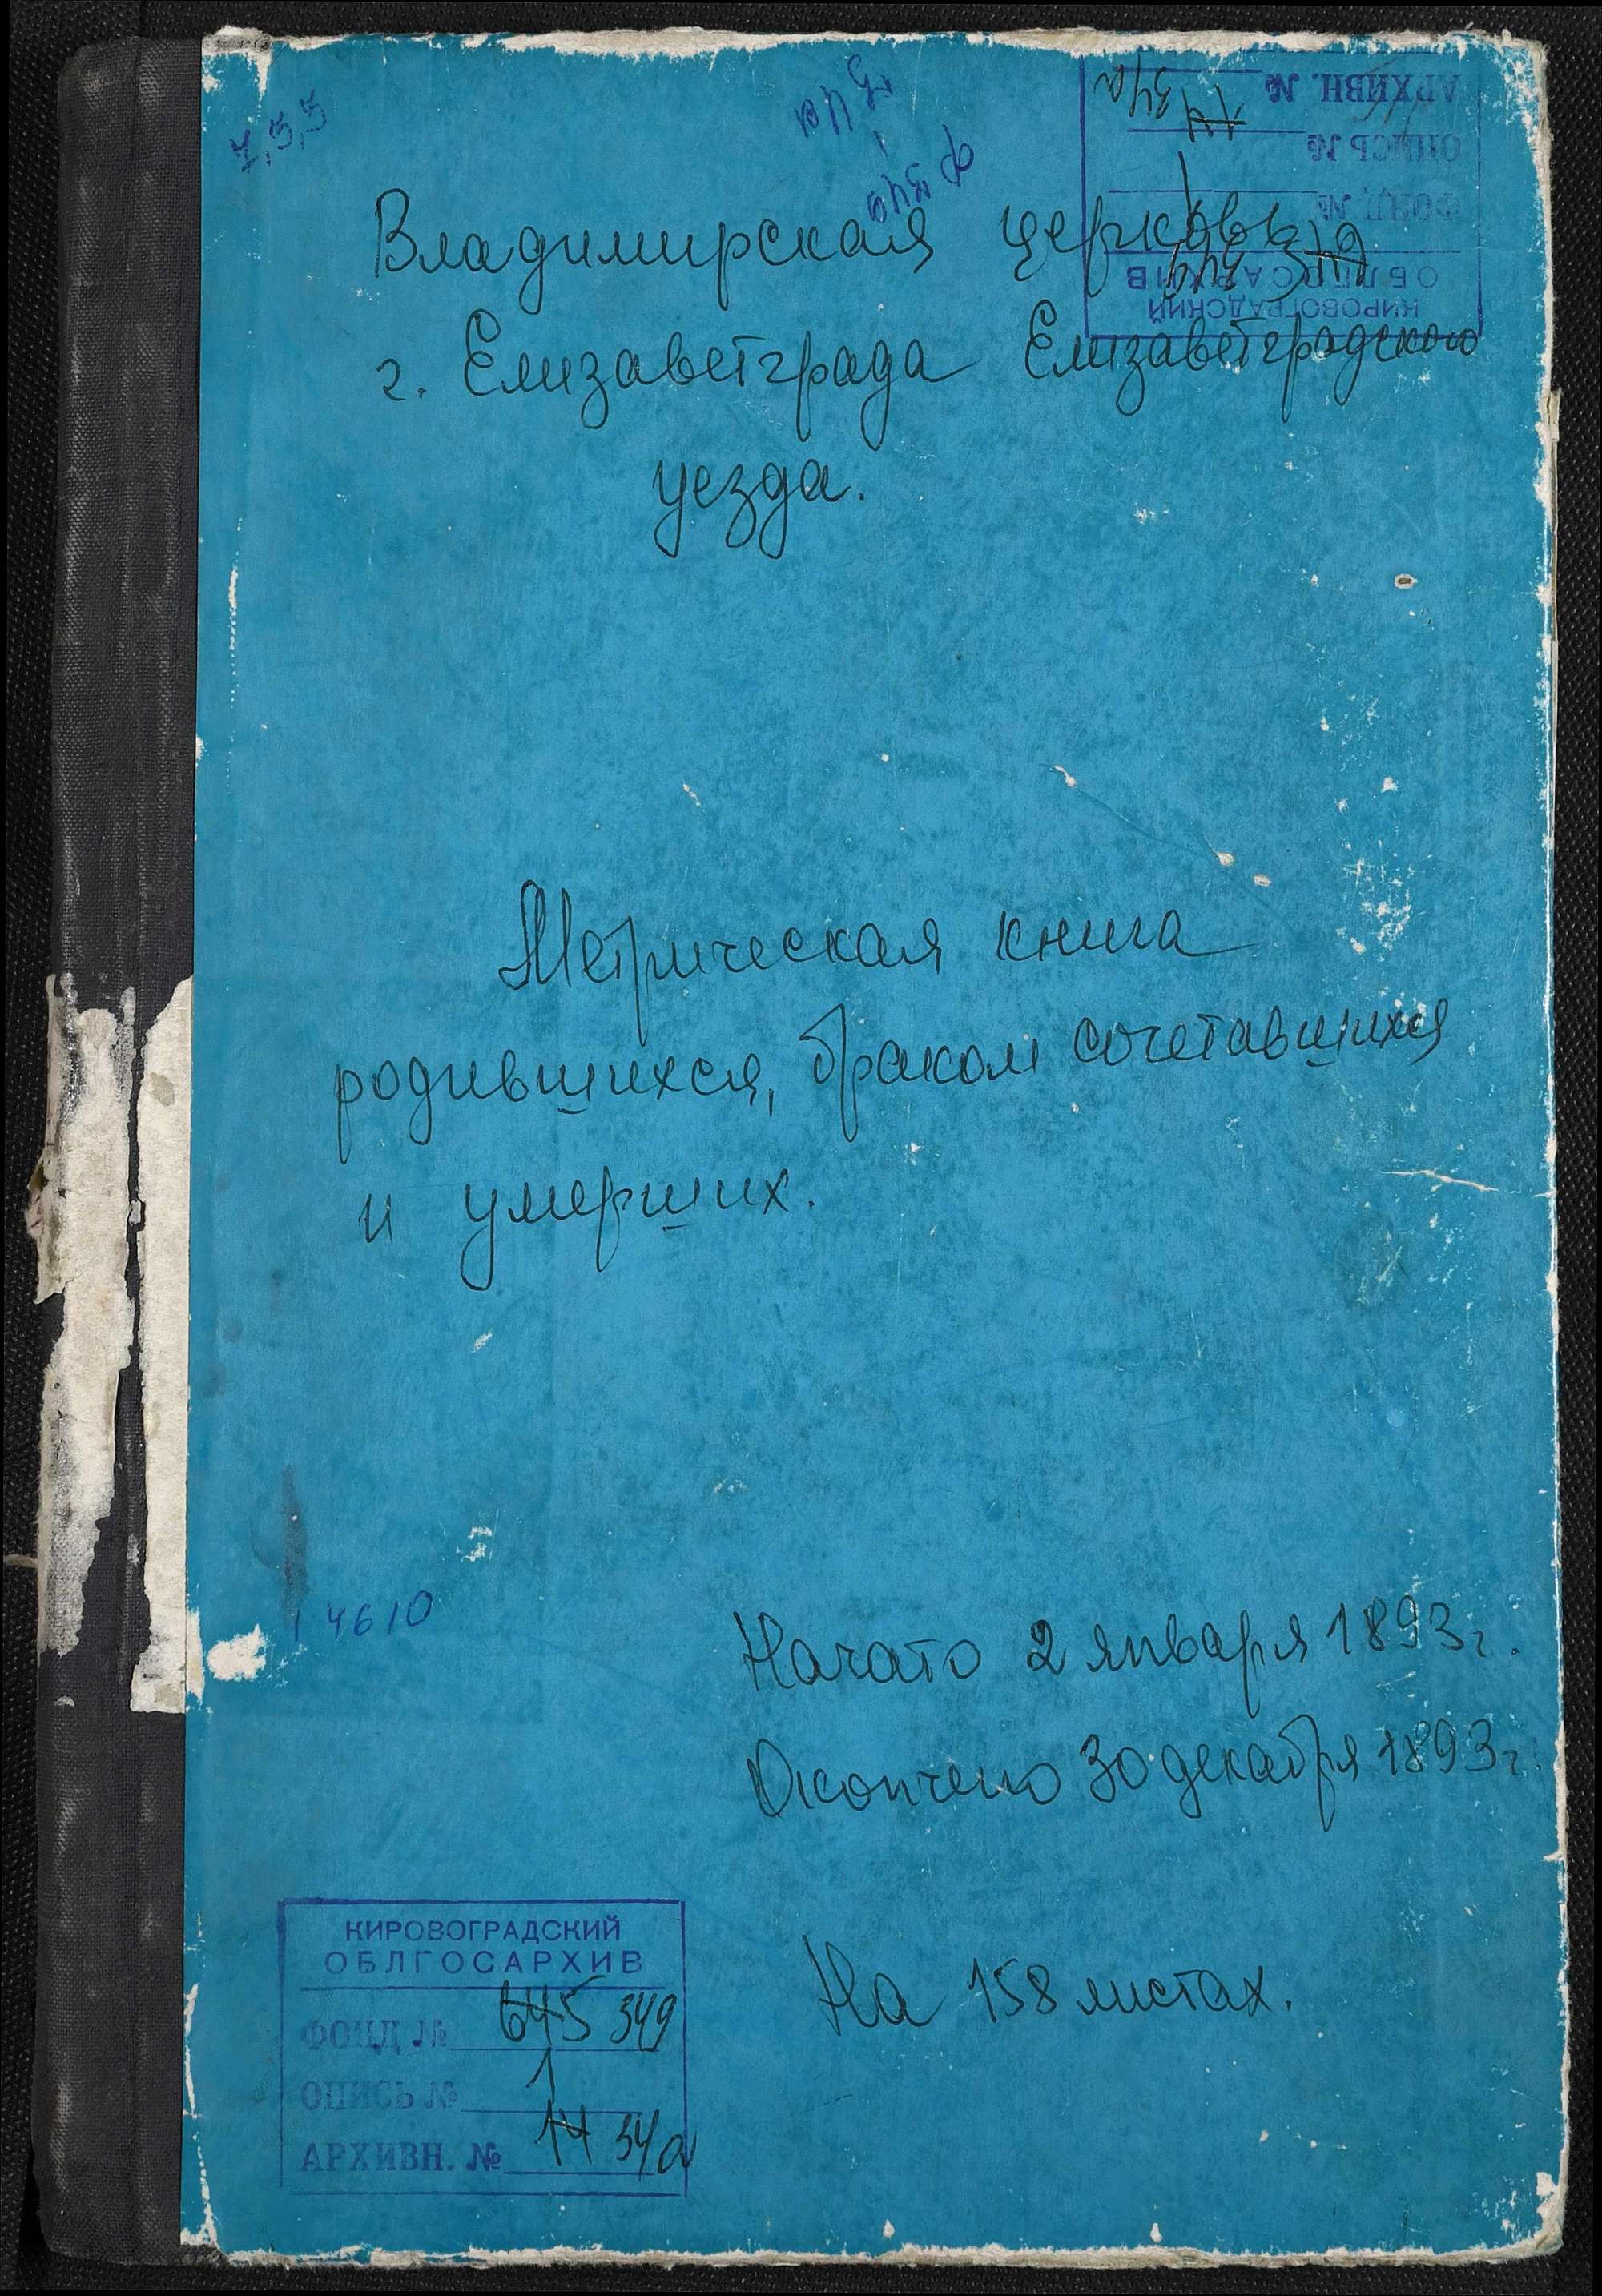 7,5,5
АРХИВН. № 14 34а
ОПИСЬ № 1
ФОНД №
КИРОВОГРАДСКИЙ
ОБЛГОСАРХИВ
Владимирская церковь
г. Елизаветграда Елизаветградского
уезда.
Метрическая книга
родившихся, браком сочетавшихся
и умерших.
14610
Начато 2 января 1893 г.
Окончено 30 декабря 1893 г.
На 158 листах.
КИРОВОГРАДСКИЙ
ОБЛГОСАРХИВ
ФОНД № 645 349
ОПИСЬ № 1
АРХИВН. № 14 34а